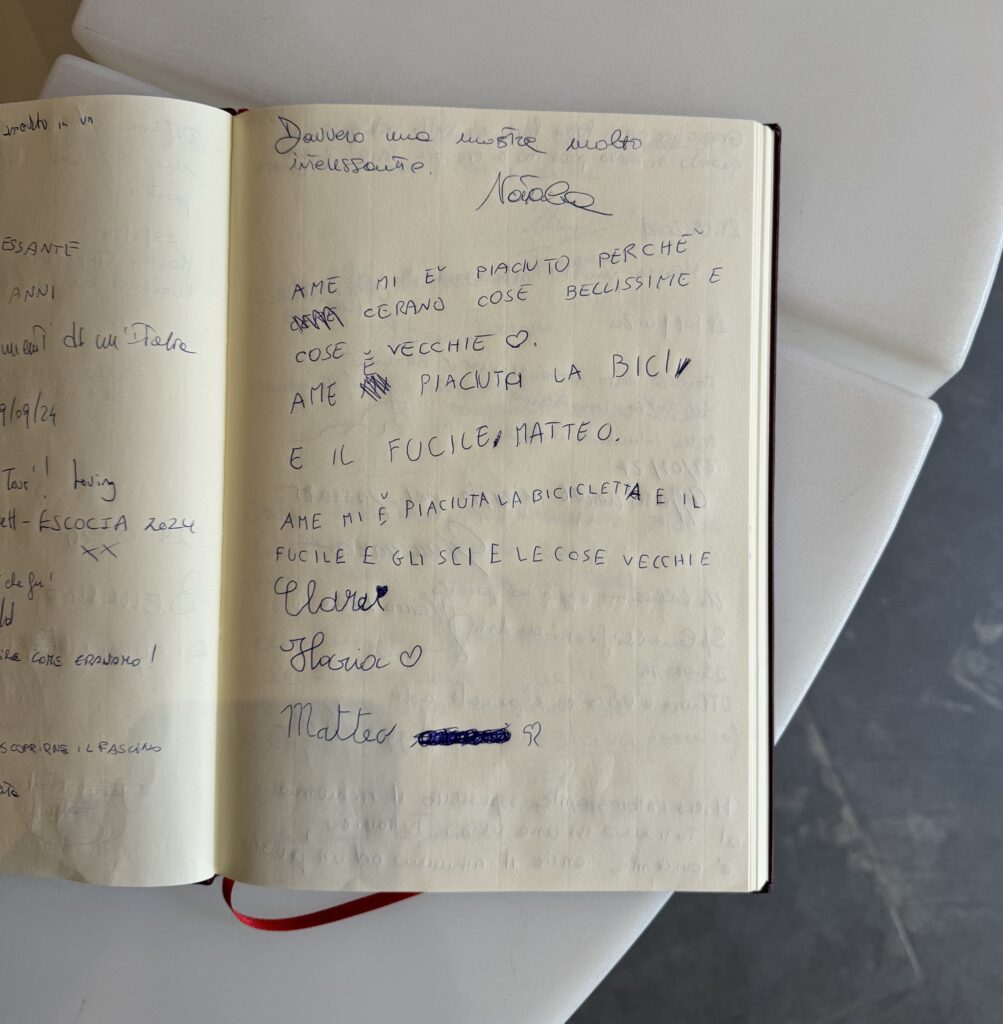 in un
ESSANTE
ANNI
di un'Italia
9/09/24
Loving
ESCOCIA 2024
xx
che fu!
COME ERAVAMO!
SCOPRIRNE IL FASCINO
Davvero una mostra molto
interessante.
Natalia
AME MI È PIACIUTO PERCHÉ
CERANO COSE BELLISSIME E
COSE VECCHIE ♡.
AME È PIACIUTA LA BICI
E IL FUCILE, MATTEO.
AME MI È PIACIUTA LA BICICLETTA E IL
FUCILE E GLI SCI E LE COSE VECCHIE
Clara
Ilaria ♡
Matteo